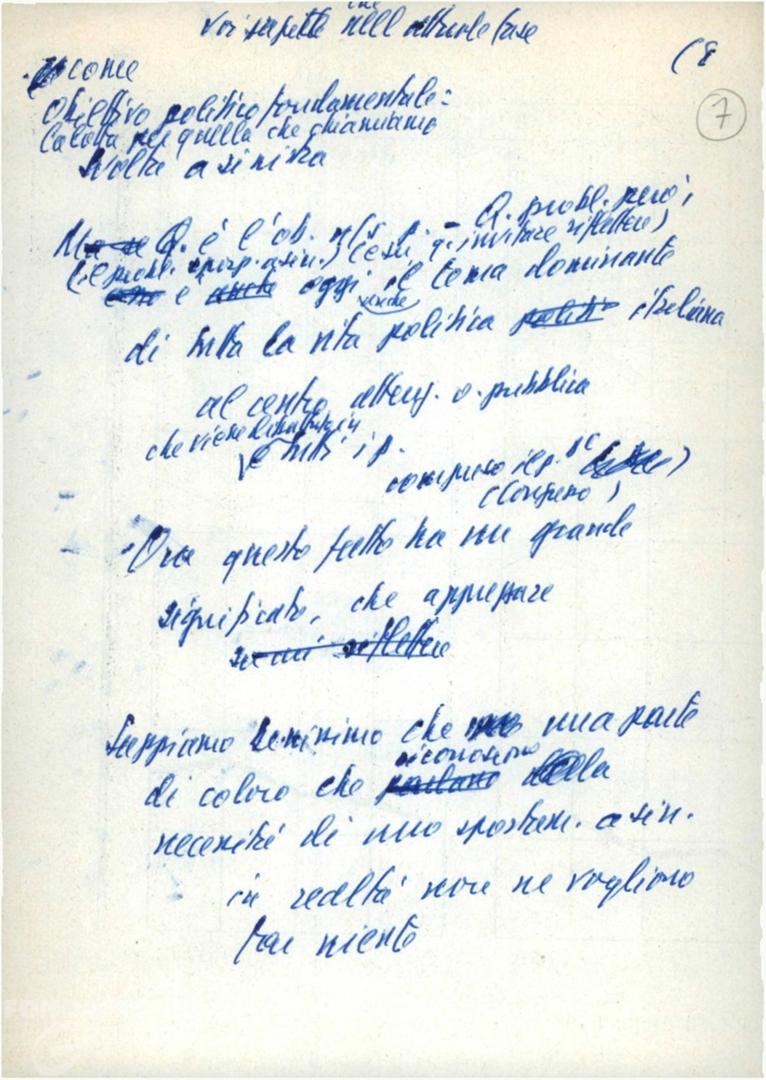 Voi sapete che nell'attuale fase
(8
7
come
obiettivo politico fondamentale:
la lotta per quella che chiamiamo
svolta a sinistra
Ma se Q. è l'ob. - Q. probl. però,
(il probl. spost. a sin.) (e su q. invitare riflettere)
è anche oggi anche il tema dominante
di tutta la vita politica politi italiana
al centro attenz. o. pubblica
che viene dibattuto in
tutti i p.
compreso il p. DC
(Congresso)
Ora questo fatto ha un grande
significato, che apprezzare
su cui riflettere
Sappiamo benissimo che una parte
di coloro che parlano riconoscono della
necessità di uno spostam. a sin.
in realtà non ne vogliono
far niente